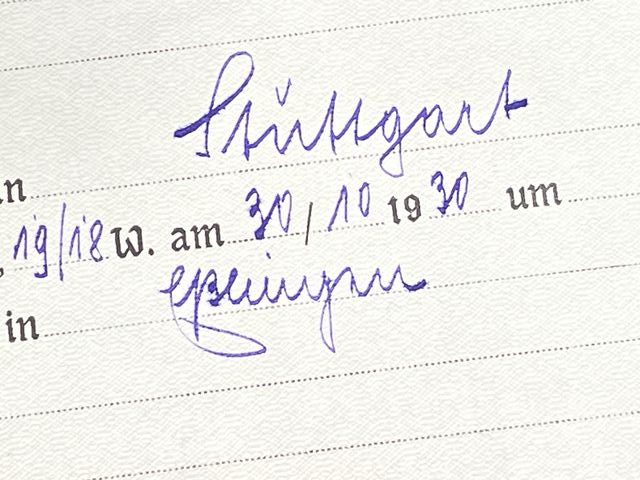 Stuttgart
19/18 W. am 30 / 10 1930 um
in Eßlingen